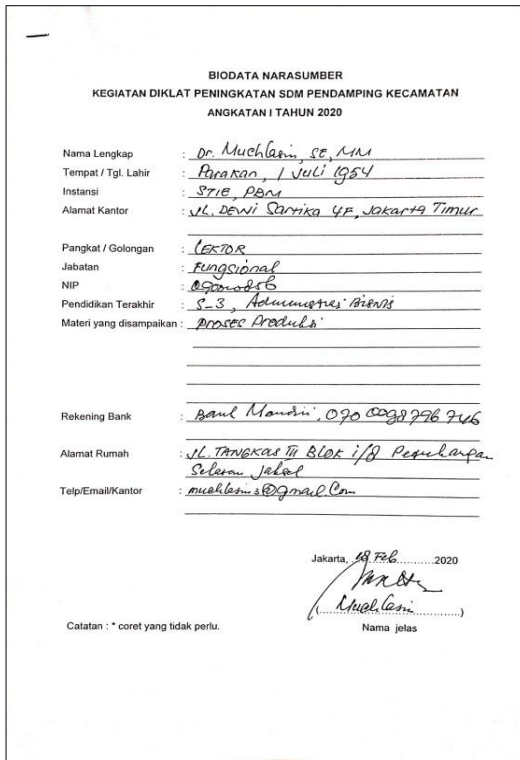 BIODATA NARASUMBER
KEGIATAN DIKLAT PENINGKATAN SDM PENDAMPING KECAMATAN
ANGKATAN I TAHUN 2020
Nama Lengkap : Dr. Muchlasin, SE, MM
Tempat / Tgl. Lahir : Parakan, 1 Juli 1954
Instansi : STIE, PBM
Alamat Kantor : JL. DEWI Sartika 4F, Jakarta Timur
Pangkat / Golongan : LEKTOR
Jabatan : Fungsional
NIP :
Pendidikan Terakhir : S-3, Administrasi Bisnis
Materi yang disampaikan : Proses Produksi
Rekening Bank : Bank Mandiri, 070 0098796746
Alamat Rumah : JL. TANGKAS III BLOK i/8
Selatan Jaksel
Telp/Email/Kantor :
Jakarta, 18 Feb 2020
(Muchlasin)
Catatan : * coret yang tidak perlu. Nama jelas